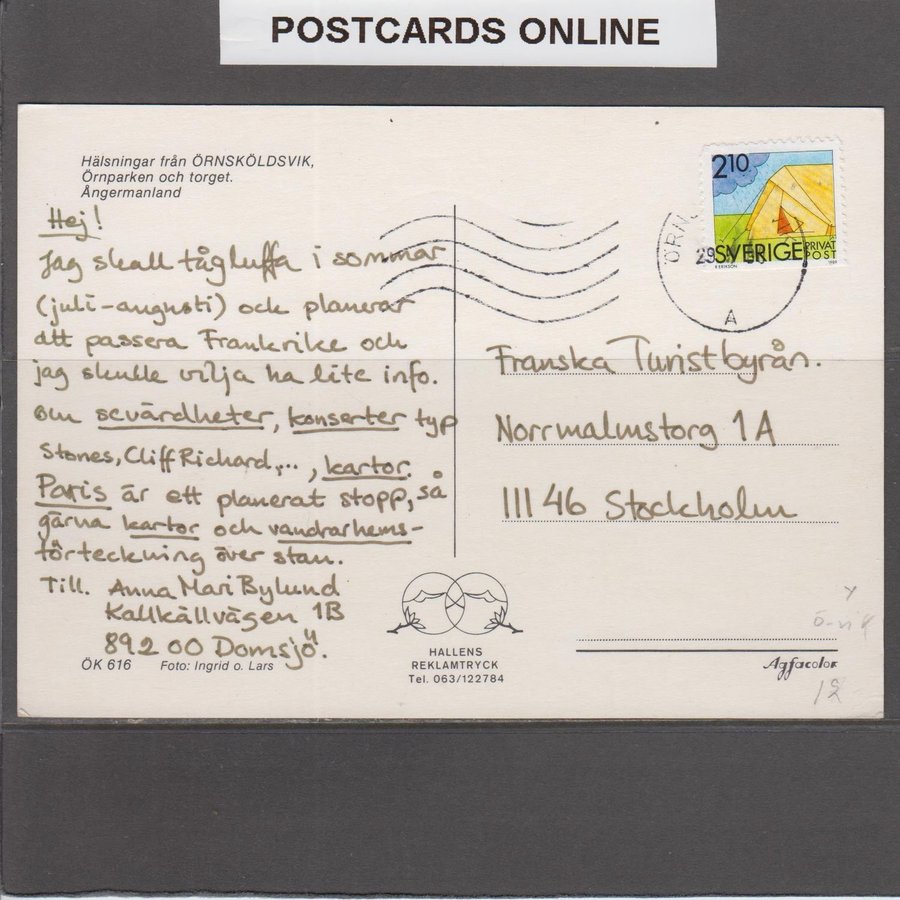 POSTCARDS ONLINE
Hälsningar från ÖRNSKÖLDSVIK,
Örnparken och torget.
Ångermanland
Hej!
Jag skall tågluffa i sommar
(juli-augusti) och planerar
att passera Frankrike och
jag skulle vilja ha lite info.
om sevärdheter, konserter typ
Stones, Cliff Richard,..., kartor.
Paris är ett planerat stopp, så
gärna kartor och vandrarhems-
förteckning över stan.
Till. Anna Mari Bylund
Kallkällvägen 1B
892 00 Domsjö.
ÖK 616 Foto: Ingrid o. Lars
HALLENS
REKLAMTRYCK
Tel. 063/122784
210
SVERIGE PRIVAT
POST
ÖRN
29
A
Franska Turistbyrån.
Norrmalmstorg 1A
111 46 Stockholm
Ö-vik
Agfacolor
12